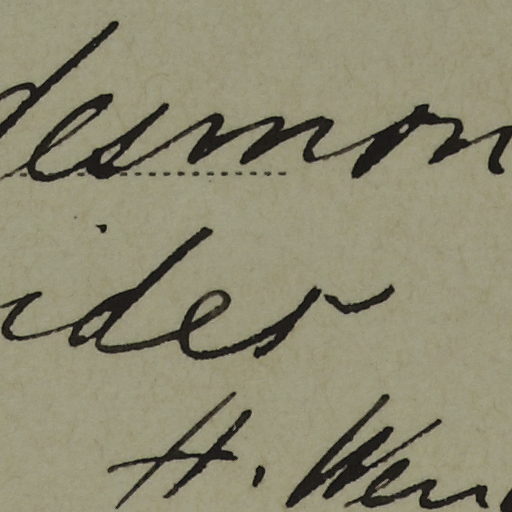 desmon
ider
H. Wen